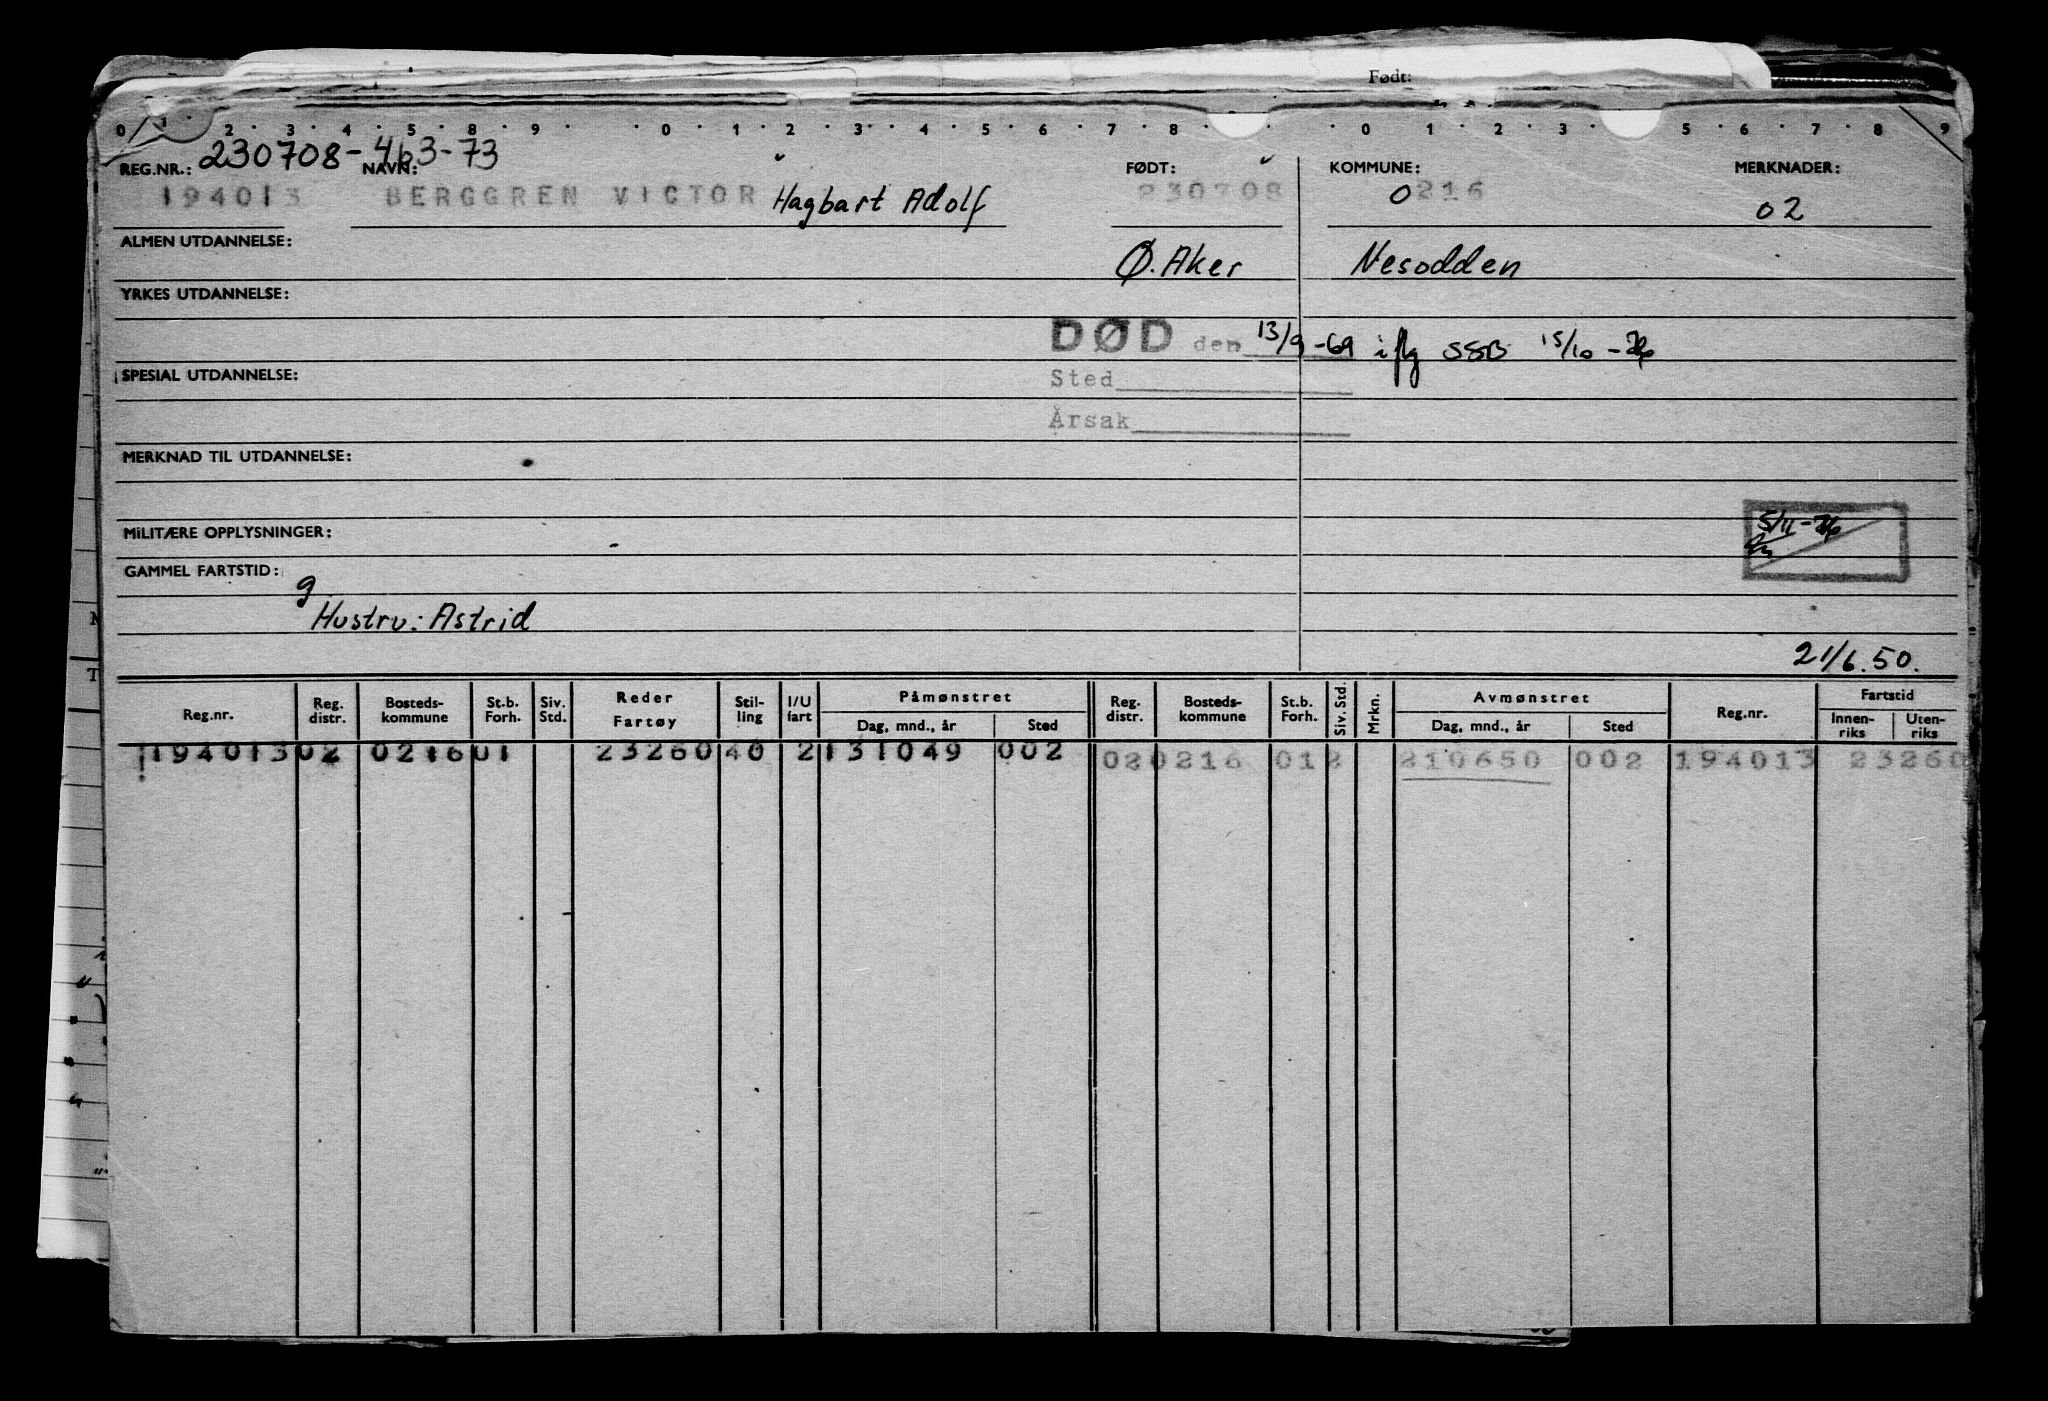 Født:
0 1 2 3 4 5 8 9 0 1 2 3 4 5 6 7 8 0 1 2 3 5 6 7 8 9
REG.NR.: 230708-463-73 NAVN: FØDT: KOMMUNE: MERKNADER:
194013 BERGGREN VICTOR Hagbart Adolf 230708 0216 02
ALMEN UTDANNELSE: Ø. Aker Nesodden
YRKES UTDANNELSE:
DØD den 13/9-69 iflg SSB 15/10-76
SPESIAL UTDANNELSE: Sted
Årsak
MERKNAD TIL UTDANNELSE:
MILITÆRE OPPLYSNINGER: 5/11-76
GAMMEL FARTSTID: g
Hustru: Astrid
21/6.50.
Reg.nr. Reg. distr. Bosteds- kommune St.b. Forh. Siv. Std. Reder Fartøy Stil- ling I/U fart Påmønstret Dag, mnd., år Sted Reg. distr. Bosteds- kommune St.b. Forh. Siv. Std. Mrkn. Avmønstret Dag, mnd., år Sted Reg.nr. Fartstid Innen- riks Uten- riks
194013 02 0216 01 23260 40 2 131049 002 02 0216 01 2 210650 002 194013 23260